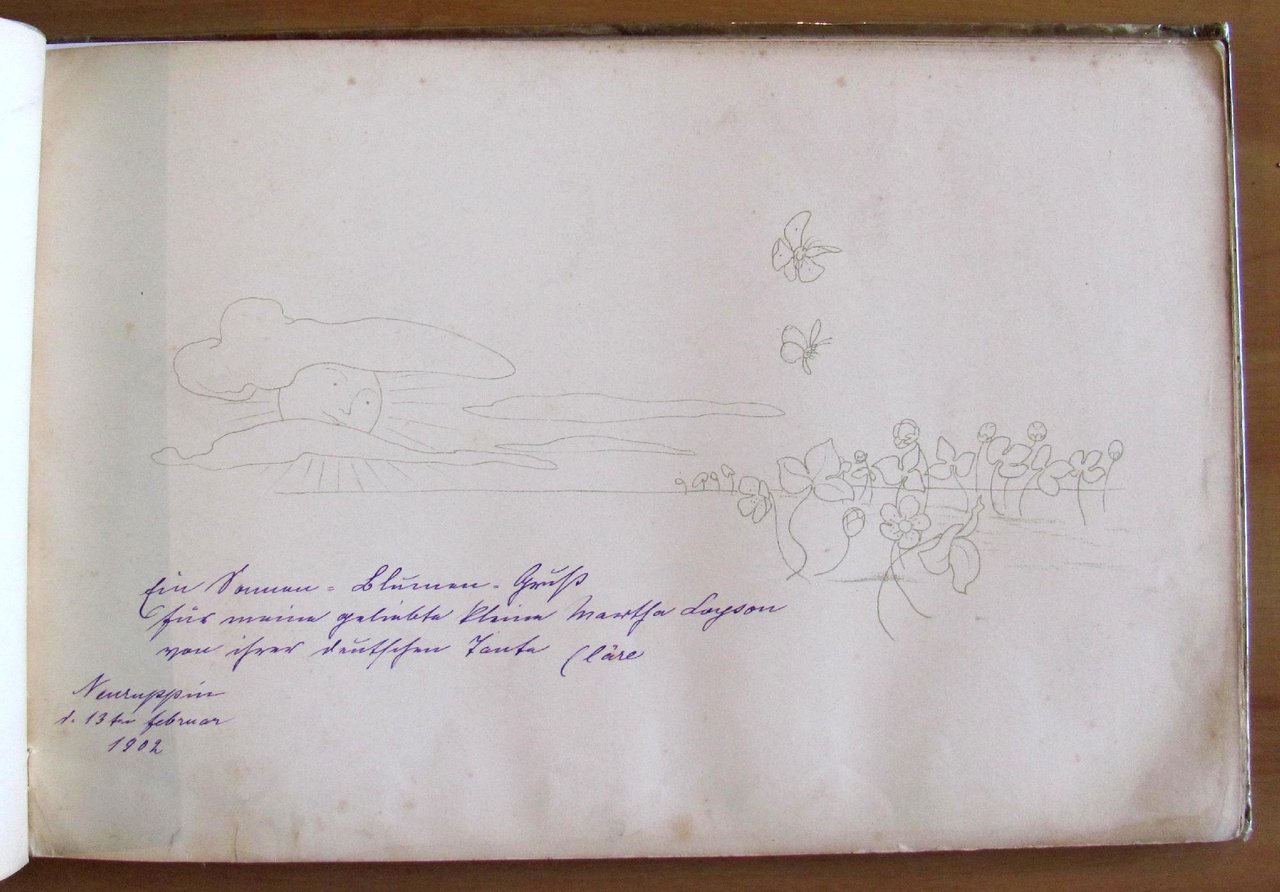 Ein Sonnen = Blumen - Gruß
für meine geliebte kleine Martha Loyson
von ihrer deutschen Tante Cläre
Neuruppin
d. 13ten Februar
1902